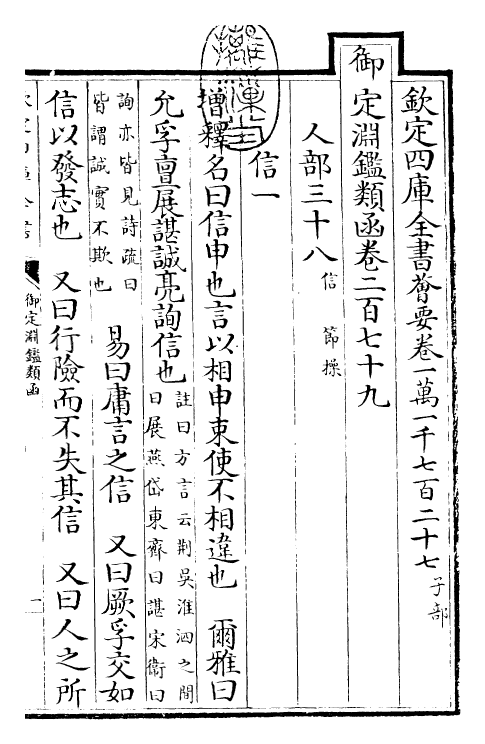 欽定四庫全書薈要卷一萬一千七百二十七 子部
御定淵鑑類函卷二百七十九
人部三十八 信 節操
信一
增釋名曰信申也言以相申束使不相違也 爾雅曰
允孚亶展諶誠亮詢信也 註曰方言云荆吳淮泗之間
曰展燕岱東齊曰諶宋衛曰
詢亦皆見詩疏曰
皆謂誠實不欺也 易曰庸言之信 又曰厥孚交如
信以發志也 又曰行險而不失其信 又曰人之所
御定淵鑑類函
一